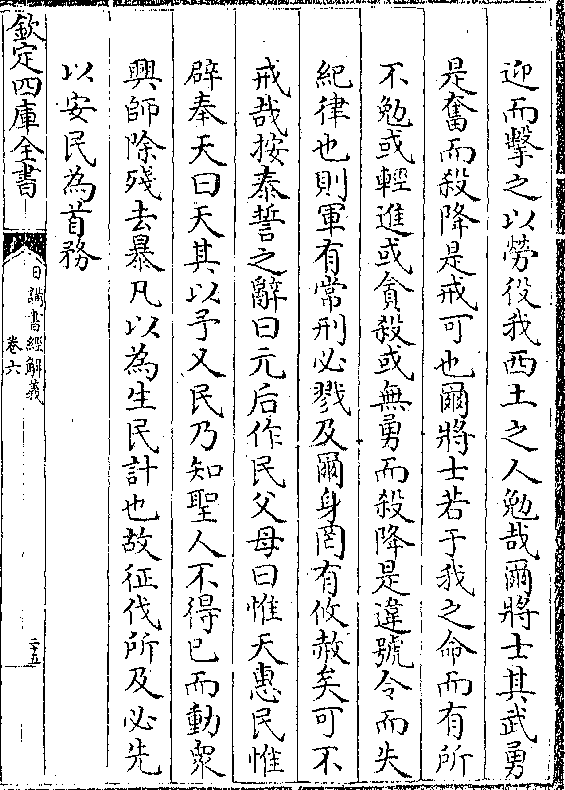 迎而擊之以勞役我西土之人勉哉爾將士其武勇
是奮而殺降是戒可也爾將士若于我之命而有所
不勉或輕進或貪殺或無勇而殺降是違號令而失
紀律也則軍有常刑必戮及爾身罔有攸赦矣可不
戒哉按泰誓之辭曰元后作民父母曰惟天惠民惟
辟奉天曰天其以予乂民乃知聖人不得已而動衆
興師除殘去暴凡以為生民計也故征伐所及必先
以安民為首務
欽定四庫全書
日講書經解義
卷六
二十五